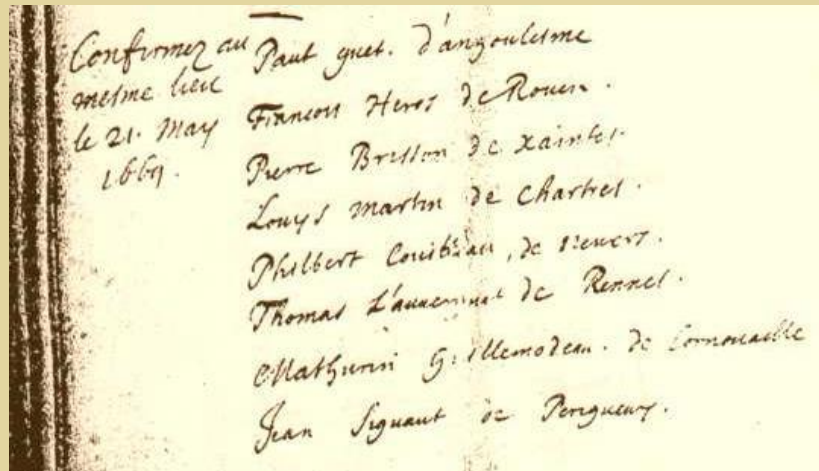 Confirmez au
mesme lieu
le 21. May
1669.
Paul guet. d'angoulesme
Francois Heros de Rouen.
Pierre Brisson de xaintes.
Louys martin de chartres.
Philbert de nevers.
Thomas de Rennes.
Mathurin Guillemodeau. de Cornouaille
Jean Siguaut de Perigueux.